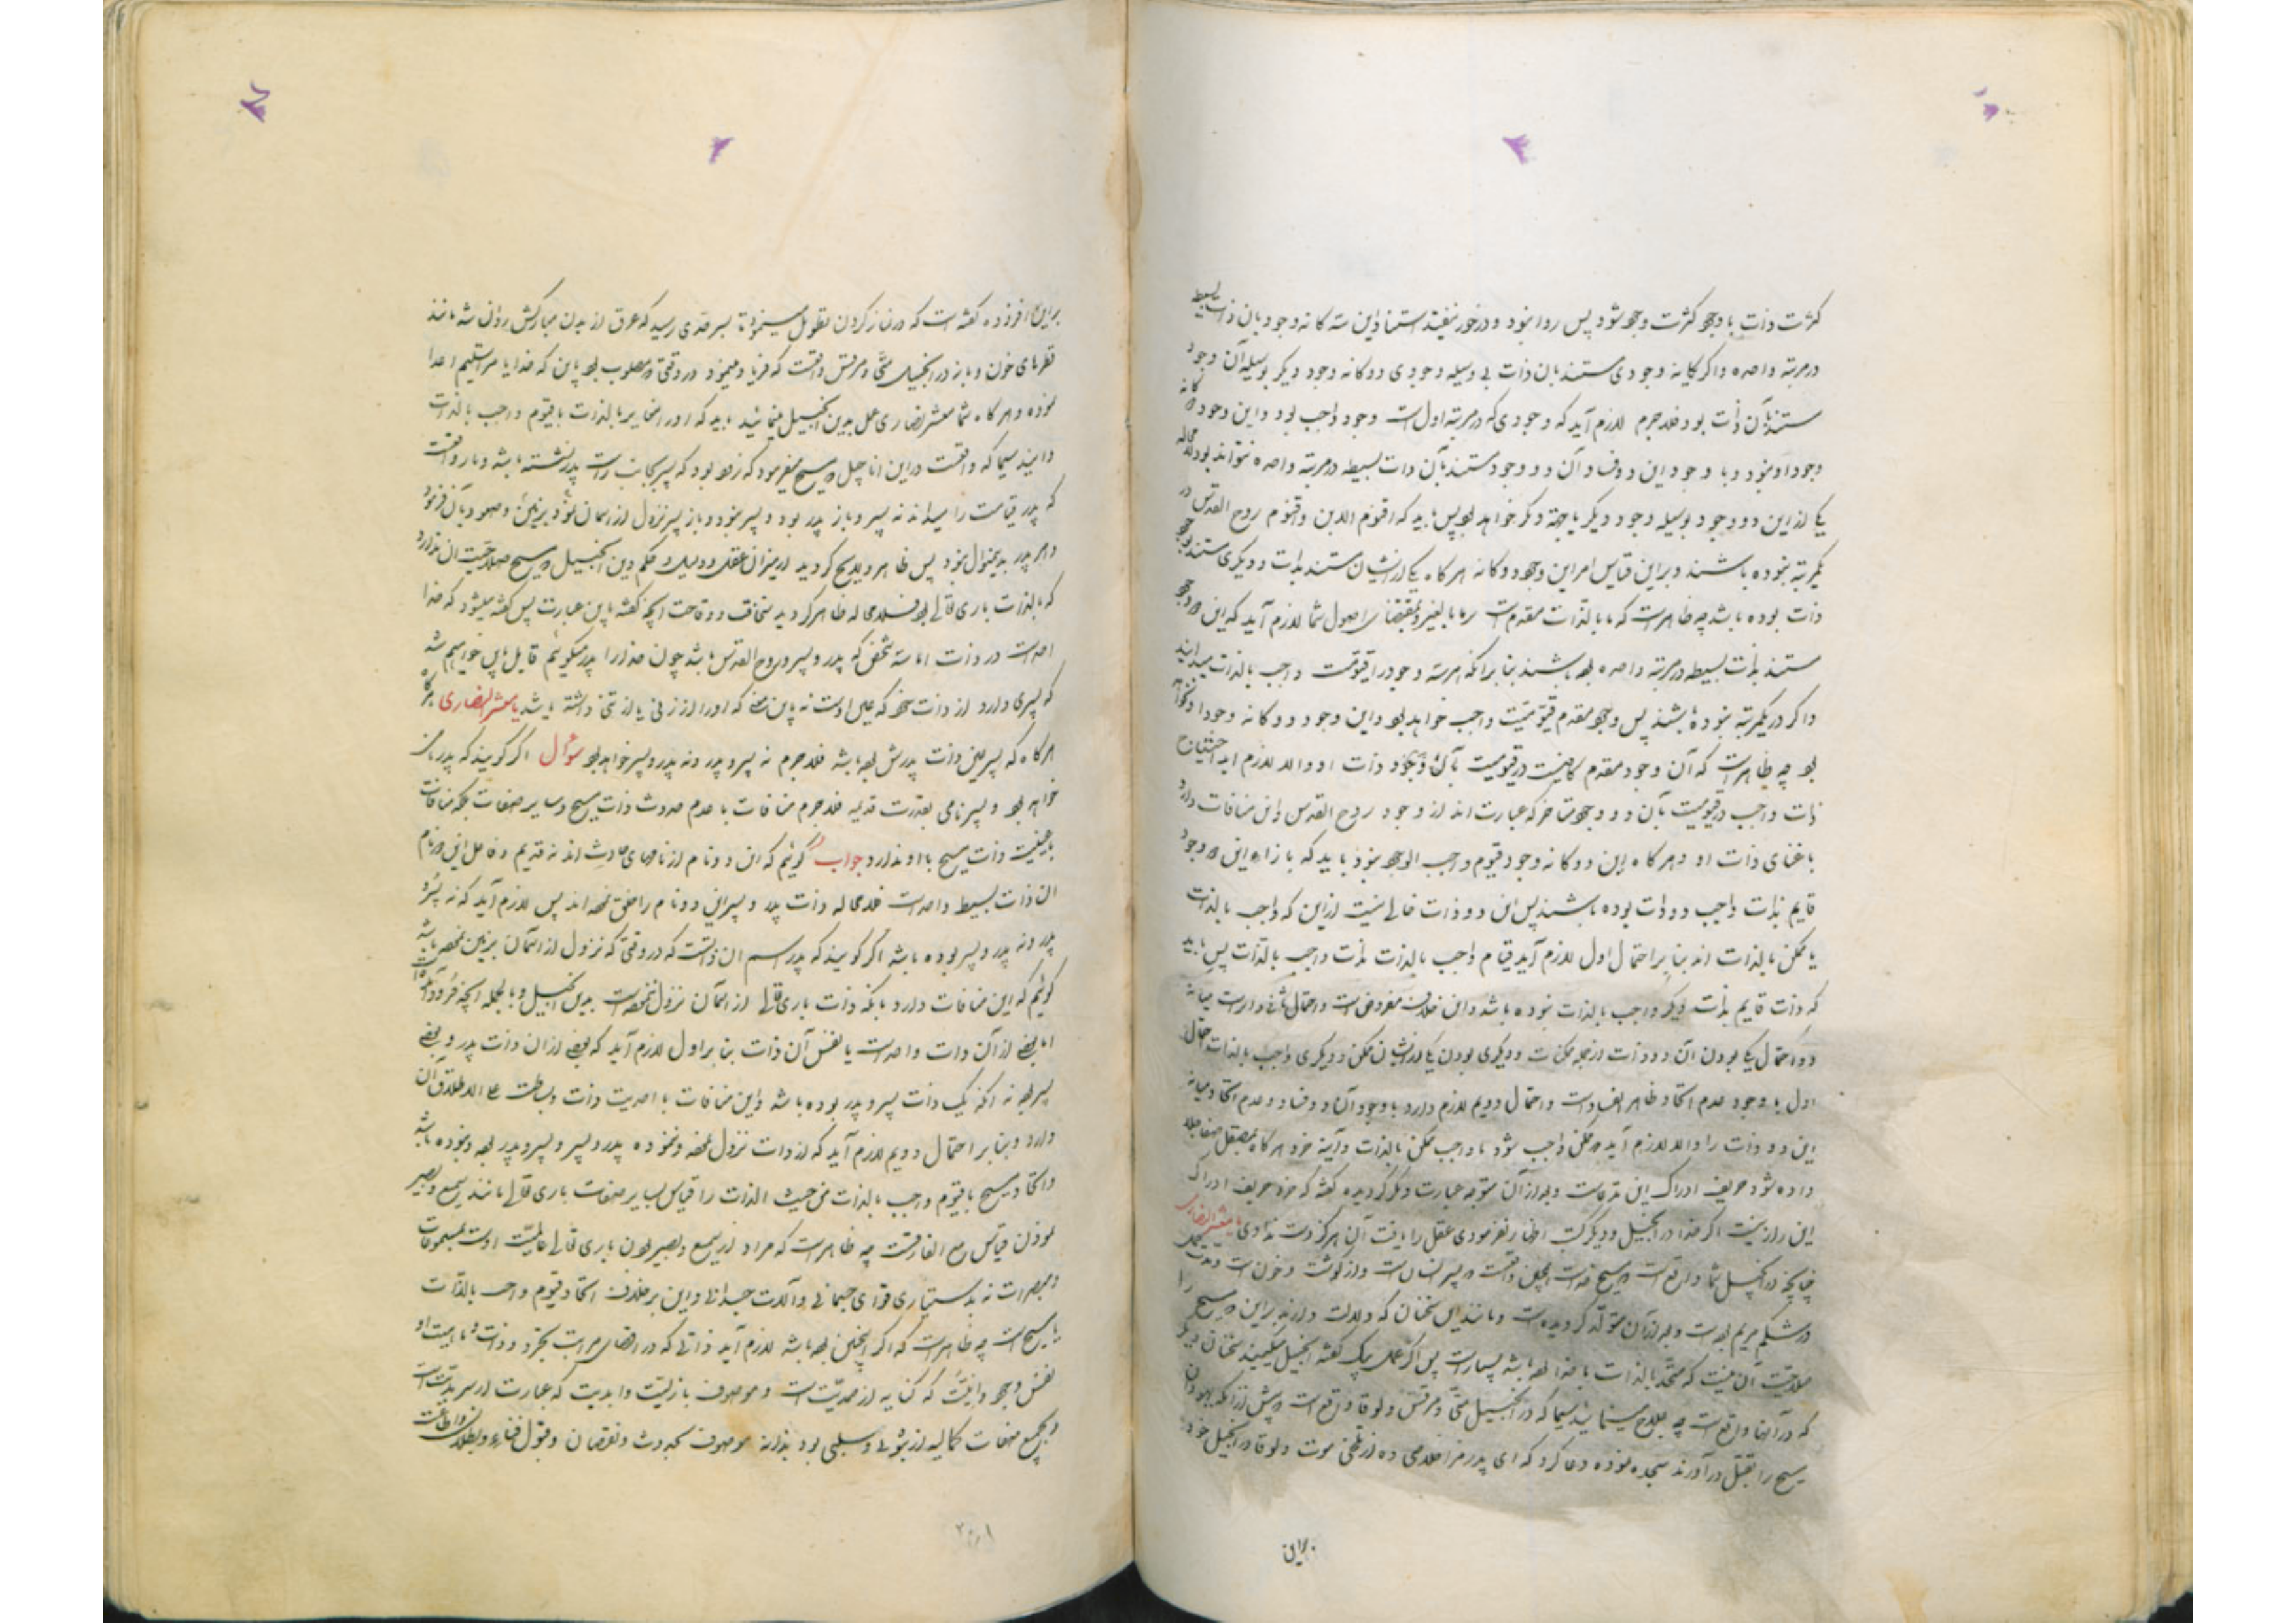 کثرت ذات با وجود کثرت وجود شود پس روا نبود و درخور نیفتد استناد این سه گانه وجود بان ذات بسیطه
در مرتبه واحده و اگر یگانه وجودی مستند بان ذات بی وسیله وجودی دوگانه وجود دیگر بوسیله آن وجود
مستند بآن ذات بود فلاجرم لازم آید که وجودی که در مرتبه اول است وجود واجب بود و این وجود گانه
وجود او نبود و با وجود این دو فساد آن دو وجود مستند بآن ذات بسیطه در مرتبه واحده نتواند بود لامحاله
یکی ازین دو وجود بوسیله وجود دیگر یا جهة دیگر خواهد بود پس باید که اقنوم الابن و اقنوم روح القدس در
یکمرتبه نبوده باشند و براین قیاس امر این وجود دوگانه هرگاه یکی از ایشان مستند بذات و دیگری مستند بوجود
ذات بوده باشد چه ظاهر است که ما بالذات مقدم است بر ما بالغیر و بمقتضای اصول شما لازم آید که این دو وجود
مستند بذات بسیطه در مرتبه واحده بوده باشند بنا برانکه هر سه وجود را قیومیت واجب بالذات میدانید
و اگر در یکمرتبه نبوده باشند پس وجود مقدم قیومیت واجب خواهد بود و این وجود دوگانه وجود او نتواند
بود چه ظاهر است که آن وجود مقدم کافیست در قیومیت بآن وجود ذات او و الا لازم اید احتیاج
ذات واجب در قیومیت بآن دو وجود متاخر که عبارت اند از وجود روح القدس و این منافات دارد
با غنای ذات او و هرگاه این دوگانه وجود قیوم واجب الوجود نبود باید که بازاء این دو وجود
قایم بذات واجب دو ذات بوده باشند پس این دو ذات خالی نیست ازین که واجب بالذات
یا ممکن بالذات اند بنا بر احتمال اول لازم آید قیام واجب بالذات بذات واجب بالذات پس باید
که ذات قایم بذات دیگر واجب بالذات نبوده باشد و این خلاف مفروض است و احتمال ثانی دایر است میانه
دو احتمال یکی بودن آن دو ذات از جمله ممکنات و دیگری بودن یکی از ایشان ممکن و دیگری واجب بالذات احتمال
اول با وجود عدم اتحاد ظاهر الفساد است و احتمال دویم لازم دارد با وجود آن دو فساد و عدم اتحاد میانه
این دو ذات را و الا لازم آید که ممکن واجب شود یا واجب ممکن بالذات و آینه خرد هرگاه بمصقل صفا جلا
داده شود حریف ادراک این مدعاست و بعد از آن متوجه عبارت دیگر گردیده گفته که خرد حریف ادراک
این راز نیست اگر خدا در انجیل و دیگر کتب اظهار نفرمودی عقل را یافت آن هرگز دست ندادی یا معشر النصاری
چنانچه در انجیل شما واقع است که مسیح خداست همچنین واقعست که پسر انسان است و از گوشت و خون است و مدت
در شکم مریم بوده است و بعد از آن متولد گردیده است و مانند این سخنان که دلالت دارند براین که مسیح را
صلاحیت آن نیست که متحد بالذات با خدا بوده باشد بسیار است پس اگر عمل بیک گفته انجیل میکنید سخنان دیگر
که در آنها واقع است چه علاج مینمایید سیما که در انجیل متی و مرقس و لوقا واقع است که پیش از آنکه یهودان
مسیح را بقتل در آورند سجده نموده دعا کرد که ای پدر مرا خلاصی ده از تلخی موت و لوقا در انجیل خود
براین
براین افزوده گفته است که در نماز کردن تطویل مینمود تا بسرحدی رسید که عرق از بدن مبارکش روان شد مانند
قطرهای خون و باز در انجیل متی و مرقس واقعست که فریاد مینمود در وقتی که مصلوب بود باین که خدایا مرا تسلیم اعدا
نموده و هرگاه شما معشر نصاری عمل بدین انجیل مینمائید باید که او را مغایر بالذات با قیوم واجب بالذات
دانید سیما که واقعست در این اناجیل که مسیح میفرمود که زود بود که پسر بجانب راست پدر نشسته باشد و باز واقعست
که پدر قیامت را میداند نه پسر و باز پدر بود و پسر نبود و باز پسر نزول از آسمان نمود بر زمین و صعود بآن فرمود
و امر پدر بدینمنوال نبود پس ظاهر و لایح گردید از میزان عقل و دلیل و حکم دین انجیل که مسیح صلاحیت ان ندارد
که بالذات باری تعالی بود فلامحاله ظاهر گردید سخافت و وقاحت آنچه گفته باین عبارت پس گفته میشود که خدا
احد است در ذات اما سه شخص که پدر و پسر و روح القدس باشد چون خدا را پدر میگوئیم قایل باین خواهیم شد
که پسری دارد از ذات خود که عین اوست نه باین معنی که او را از زنی یا از تنی داشته باشد یا معشر النصاری هرگاه
هرگاه که پسر عین ذات پدرش بوده باشد فلاجرم نه پسر و پدر و نه پدر و پسر خواهد بود سؤال اگر گویند که پدر نامی
خواهد بود و پسر نامی بقدرت قدیمه فلاجرم منافات با عدم حدوث ذات مسیح و سایر صفات بلکه منافات
با عینیت ذات مسیح با او ندارد جواب گوئیم که این دو نام از نامهای حادث اند نه قدیم و فاعل این دو نام
ان ذات بسیط واحد است فلامحاله ذات پدر و پسر این دو نام را خلق نموده اند پس لازم آید که نه پسر و
پدر و نه پدر و پسر بوده باشد اگر گویند که پدر اسم ان ذاتست که در وقتی که نزول از آسمان بر زمین نموده باشد
گوئیم که این منافات دارد بانکه ذات باری تعالی از آسمان نزول ننموده است بدین انجیل و بالجمله آنچه فرود آمد
اما بعضی از آن ذات واحد است یا نفس آن ذات بنا بر اول لازم آید که بعضی از ان ذات پدر و بعضی
پسر بود نه آنکه یک ذات پسر و پدر بوده باشد و این منافات با احدیت ذات و بساطت علی الاطلاق آن
دارد و بنا بر احتمال دویم لازم آید که از ذات نزول نموده و ننموده پدر و پسر و پسر و پدر بوده و نبوده باشد
و اتحاد مسیح با قیوم واجب بالذات من حیث الذات را قیاس بسایر صفات باری تعالی مانند سمیع و بصیر
نمودن قیاس مع الفارقست چه ظاهر است که مراد از سمیع و بصیر بودن باری تعالی عالمیت اوست بمسموعات
و مبصرات نه بدستیاری قوای جسمانی و آلات جسدانی و این بر خلاف اتحاد قیوم واجب بالذات
با مسیح است چه ظاهر است که اگر همچنین بوده باشد لازم آید ذاتی که در اقصای مراتب تجرد و ذات و ماهیت او
نفس وجود و انیت که کنایه از صمدیتست و موصوف بازلیت و ابدیت که عبارت از سرمدیتست
و بجمیع صفات کمالیه از ثبوتی و سلبی بود بذاته موصوف بحدوث و نقصان و قبول فناء و بطلان